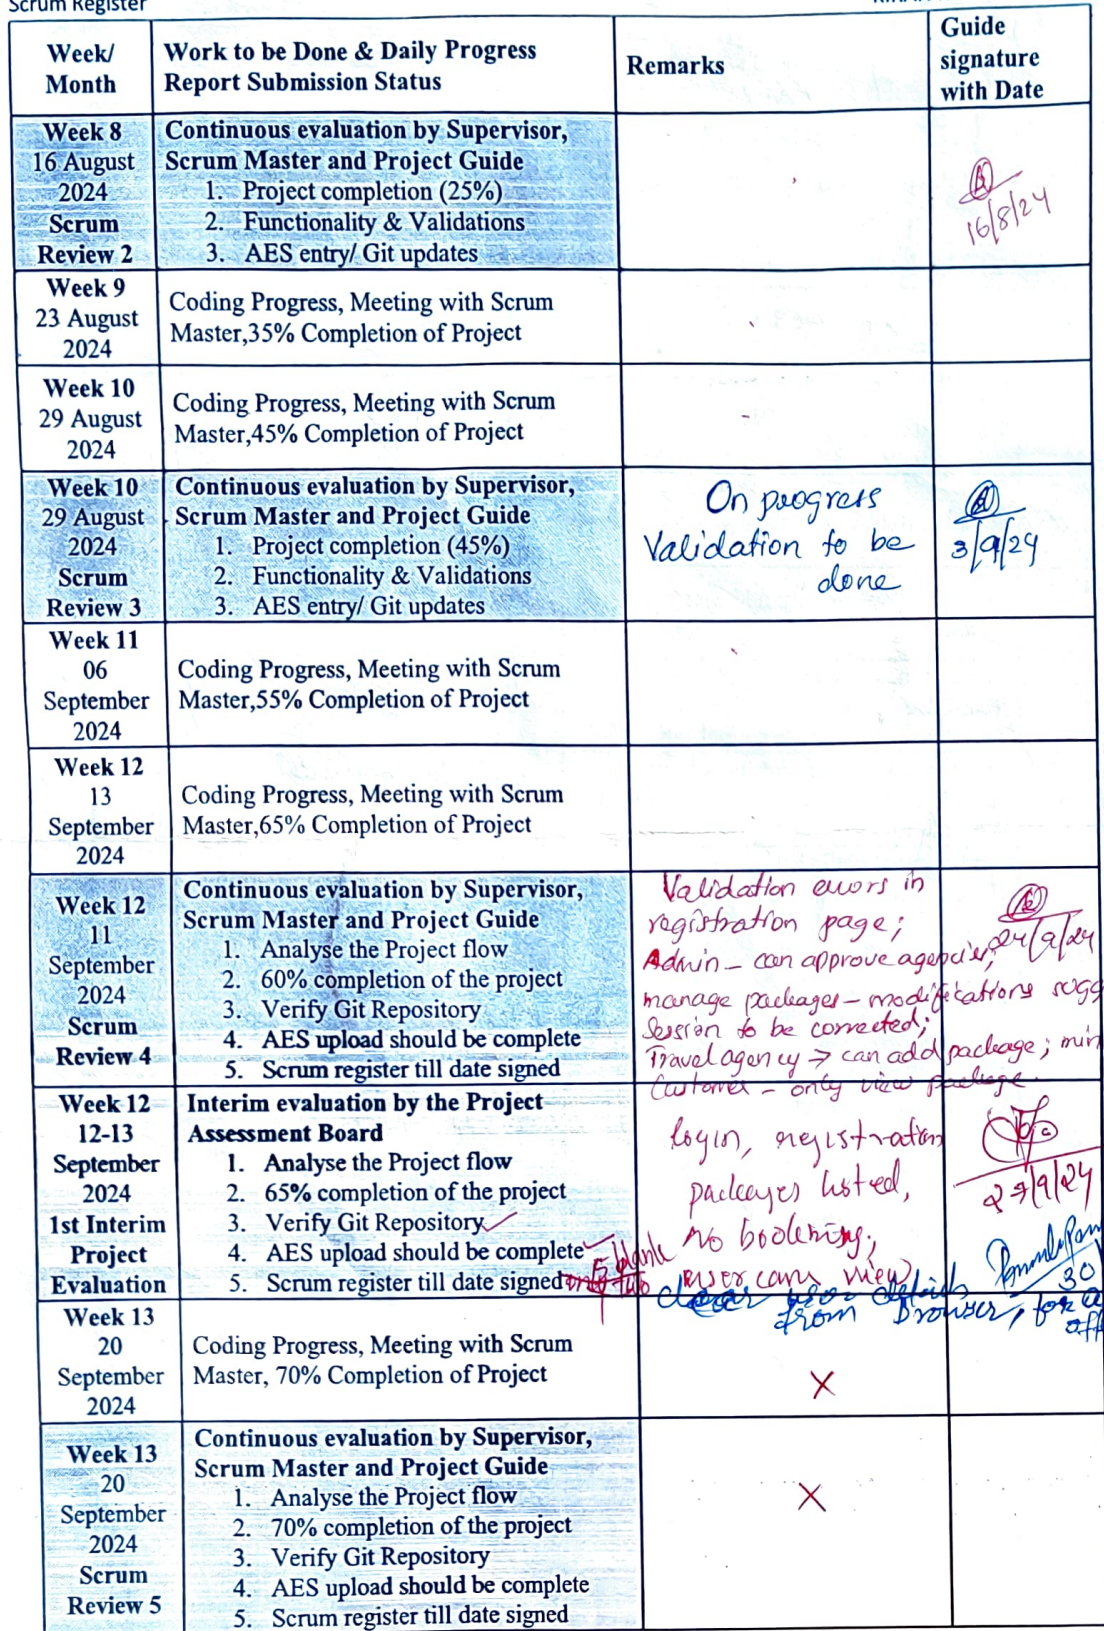 Scrum Register
Week/
Month
Work to be Done & Daily Progress
Report Submission Status
Remarks
Guide
signature
with Date
Week 8
16 August
2024
Scrum
Review 2
Continuous evaluation by Supervisor,
Scrum Master and Project Guide
1. Project completion (25%)
2. Functionality & Validations
3. AES entry/ Git updates
16/8/24
Week 9
23 August
2024
Coding Progress, Meeting with Scrum
Master,35% Completion of Project
Week 10
29 August
2024
Coding Progress, Meeting with Scrum
Master,45% Completion of Project
Week 10
29 August
2024
Scrum
Review 3
Continuous evaluation by Supervisor,
Scrum Master and Project Guide
1. Project completion (45%)
2. Functionality & Validations
3. AES entry/ Git updates
On progress
Validation to be
done
3/9/24
Week 11
06
September
2024
Coding Progress, Meeting with Scrum
Master,55% Completion of Project
Week 12
13
September
2024
Coding Progress, Meeting with Scrum
Master,65% Completion of Project
Week 12
11
September
2024
Scrum
Review 4
Continuous evaluation by Supervisor,
Scrum Master and Project Guide
1. Analyse the Project flow
2. 60% completion of the project
3. Verify Git Repository
4. AES upload should be complete
5. Scrum register till date signed
Validation errors in
registration page;
Admin - can approve agencies,
manage packages - modifications sugg
Session to be corrected;
Travel agency → can add package; min
Customer - only view package
24/9/24
Week 12
12-13
September
2024
1st Interim
Project
Evaluation
Interim evaluation by the Project
Assessment Board
1. Analyse the Project flow
2. 65% completion of the project
3. Verify Git Repository ✓
4. AES upload should be complete ✓
5. Scrum register till date signed
5 blank
login, registration
packages listed,
No booking;
user can view
27/9/24
clear user details
from browser, for a
30
off
Week 13
20
September
2024
Coding Progress, Meeting with Scrum
Master, 70% Completion of Project
X
Week 13
20
September
2024
Scrum
Review 5
Continuous evaluation by Supervisor,
Scrum Master and Project Guide
1. Analyse the Project flow
2. 70% completion of the project
3. Verify Git Repository
4. AES upload should be complete
5. Scrum register till date signed
X